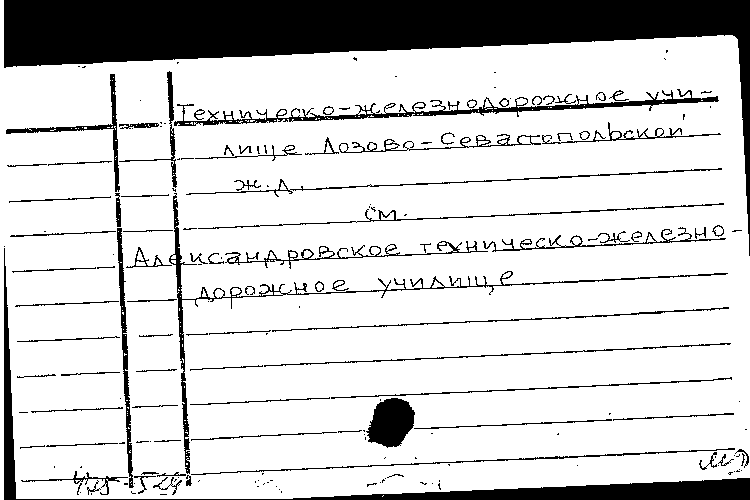 Техническо-железнодорожное учи-
лище Лозово-Севастопольской
ж.д.
см.
Александровское техническо-железно-
дорожное училище